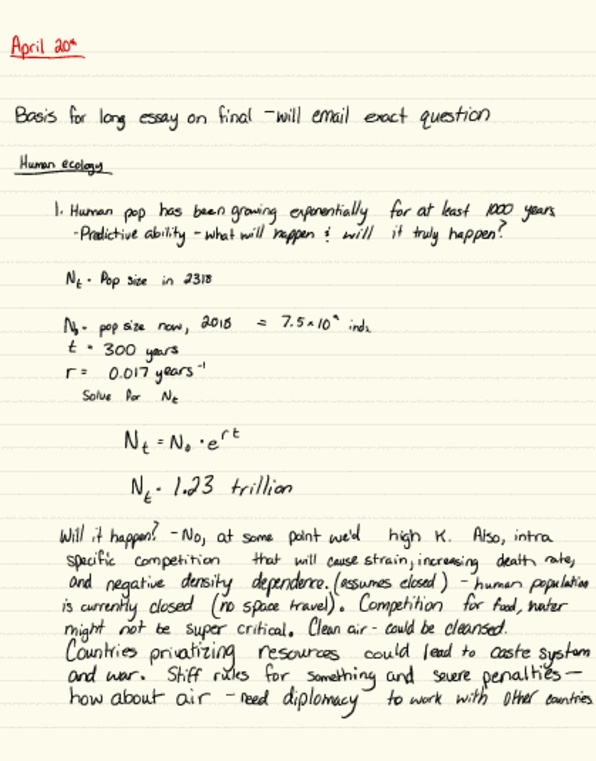 April 20th
Basis for long essay on final - will email exact question
Human ecology
1. Human pop has been growing exponentially for at least 1000 years
- Predictive ability - what will happen & will it truly happen?
Nt = Pop size in 2318
N0 = pop size now, 2018 = 7.5 x 10^9 inds
t = 300 years
r = 0.017 years^-1
Solve for Nt
Nt = N0 · e^rt
Nt = 1.23 trillion
Will it happen? - No, at some point we'd high K. Also, intra
specific competition that will cause strain, increasing death rate,
and negative density dependence. (assumes closed) - human population
is currently closed (no space travel). Competition for food, water
might not be super critical. Clean air - could be cleansed.
Countries privatizing resources could lead to caste system
and war. Stiff rules for something and severe penalties -
how about air - need diplomacy to work with other countries